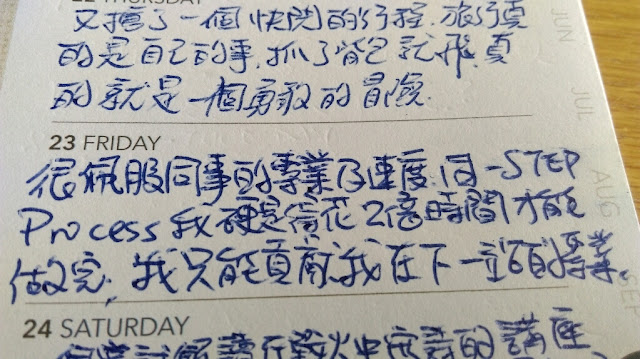 22 THURSDAY
又擠了一個快閃的行程. 旅行真
的是自己的事. 抓了背包就飛. 真
的就是一個勇敢的冒險.
23 FRIDAY
很佩服同事的專業及速度. 同一STEP
Process 我硬是得花2倍時間才能
做完, 我只能貢獻我在下一站的專業.
24 SATURDAY
的講座
JUN
JUL
AUG
SEP